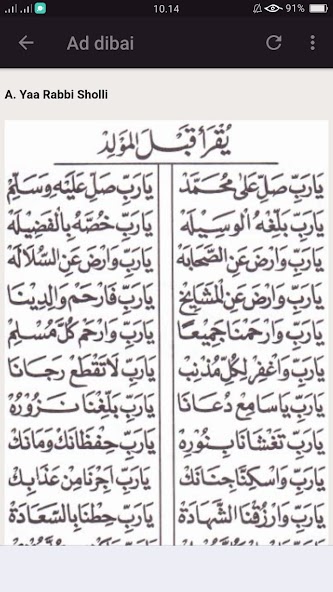 10.14
91%
Ad dibai
A. Yaa Rabbi Sholli
يُقْرَأُ قَبْلَ الْمَوْلِدْ
يَارَبِّ صَلِّ عَلَى مُحَمَّدْ يَارَبِّ صَلِّ عَلَيْهِ وَسَلِّمْ
يَارَبِّ بَلِّغْهُ الْوَسِيْلَهْ يَارَبِّ خُصَّهُ بِالْفَضِيْلَهْ
يَارَبِّ وَارْضَ عَنِ الصَّحَابَهْ يَارَبِّ وَارْضَ عَنِ السُّلَالَهْ
يَارَبِّ وَارْضَ عَنِ الْمَشَايِخْ يَارَبِّ فَارْحَمْ وَالِدِيْنَا
يَارَبِّ وَارْحَمْنَا جَمِيْعًا يَارَبِّ وَارْحَمْ كُلَّ مُسْلِمْ
يَارَبِّ وَاغْفِرْ لِكُلِّ مُذْنِبْ يَارَبِّ لَاتَقْطَعْ رَجَانَا
يَارَبِّ يَاسَامِعْ دُعَانَا يَارَبِّ بَلِّغْنَا نَزُوْرُهْ
يَارَبِّ تَغْشَانَا بِنُوْرِهْ يَارَبِّ حِفْظَانَكْ وَمَانَكْ
يَارَبِّ وَاسْكِنَّا جِنَانَكْ يَارَبِّ اَجِرْنَا مِنْ عَذَابِكْ
يَارَبِّ وَارْزُقْنَا الشَّهَادَةْ يَارَبِّ حِطْنَا بِالسَّعَادَةْ